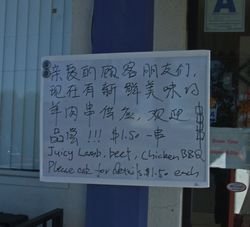 亲爱的顾客朋友们,
现在有新鲜美味的
羊肉串供应,欢迎
品尝!!! $1.50一串
Juicy Lamb, beef, chicken BBQ
Please ask for details $1.50 each
A